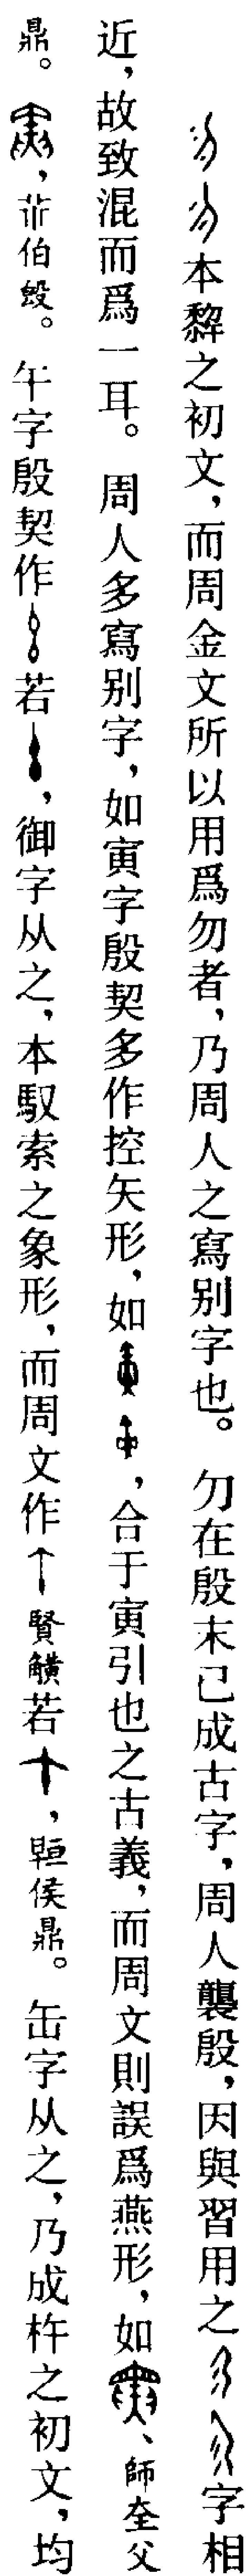 本黎之初文，而周金文所以用爲勿者，乃周人之寫别字也。勿在殷末已成古字，周人襲殷，因與習用之字相
近，故致混而爲一耳。周人多寫别字，如寅字殷契多作控矢形，如，合于寅引也之古義，而周文則誤爲燕形，如、師𡘇父
鼎。，伯㲃。午字殷契作若，御字从之，本馭索之象形，而周文作賢觵若，侯鼎。缶字从之，乃成杵之初文，均